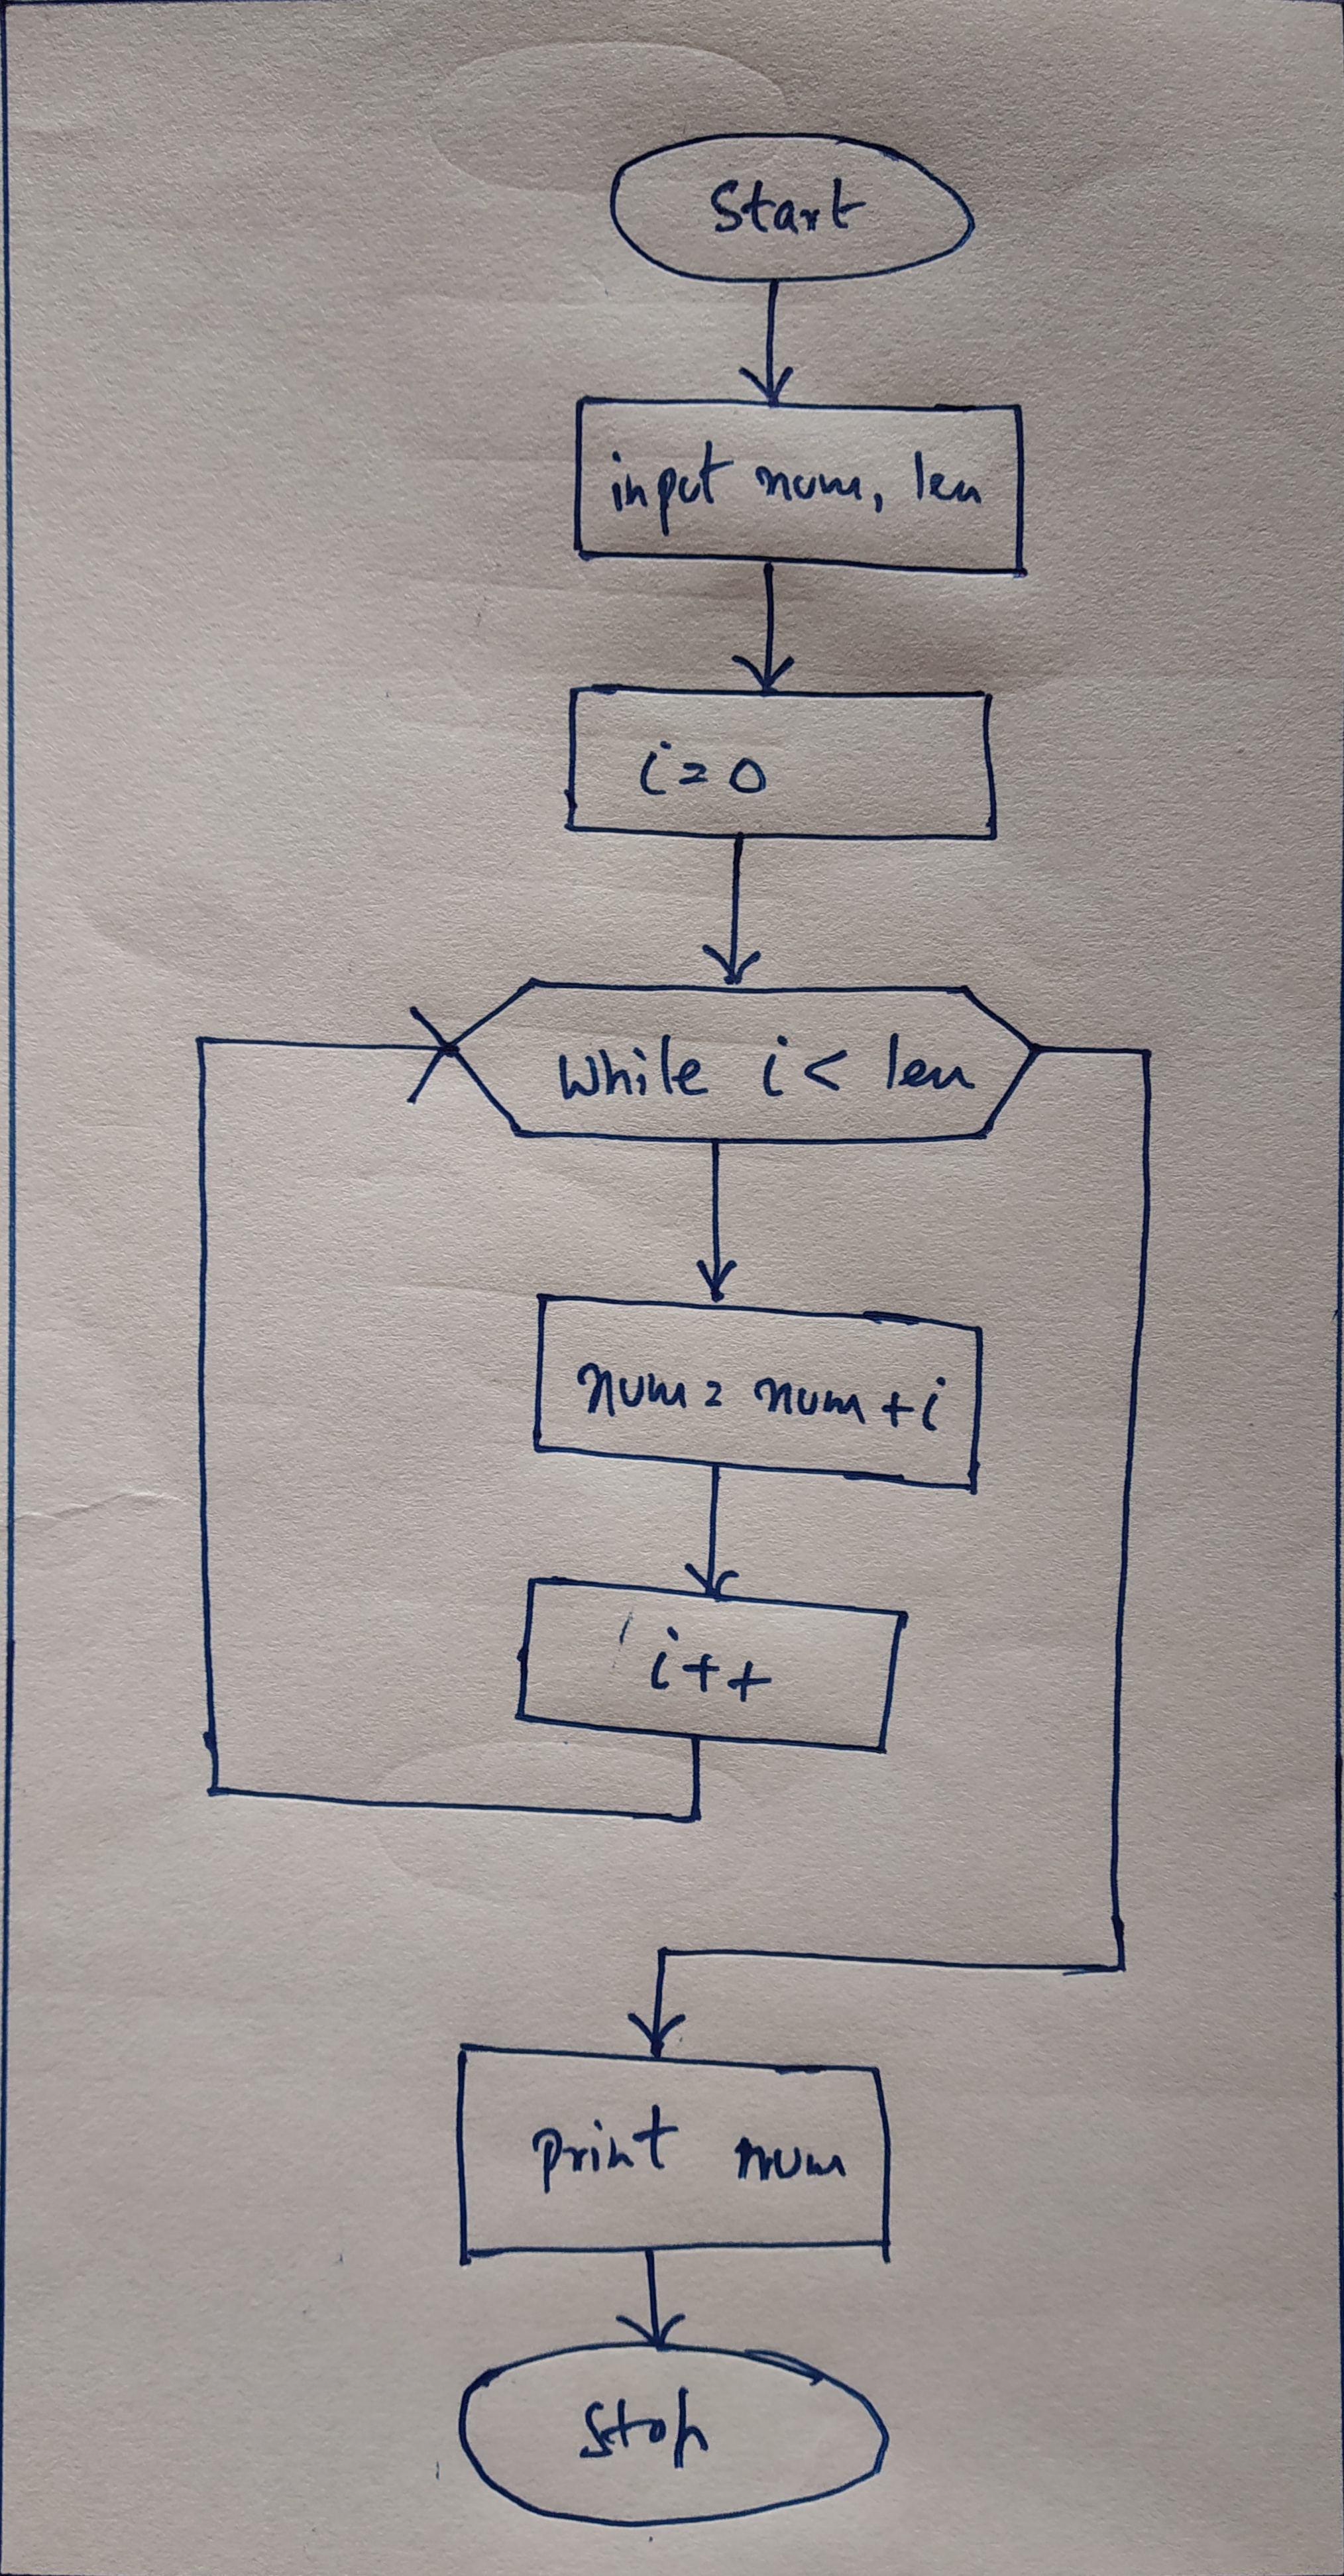 Start
input num, len
i=0
While i < len
num = num + i
i++
print num
Stop